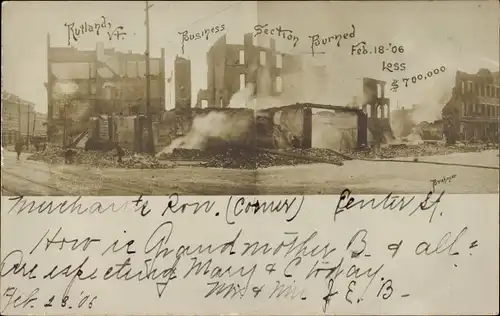 Rutland, Vt Business Section Burned
Feb. 18-'06
Loss
$700,000
Merchants Row. (Corner) Center St.
How is Grandmother B. & all?
Are expecting Mary & C. today.
Feb. 23, '06 Mr. & Mrs. J. E. B.